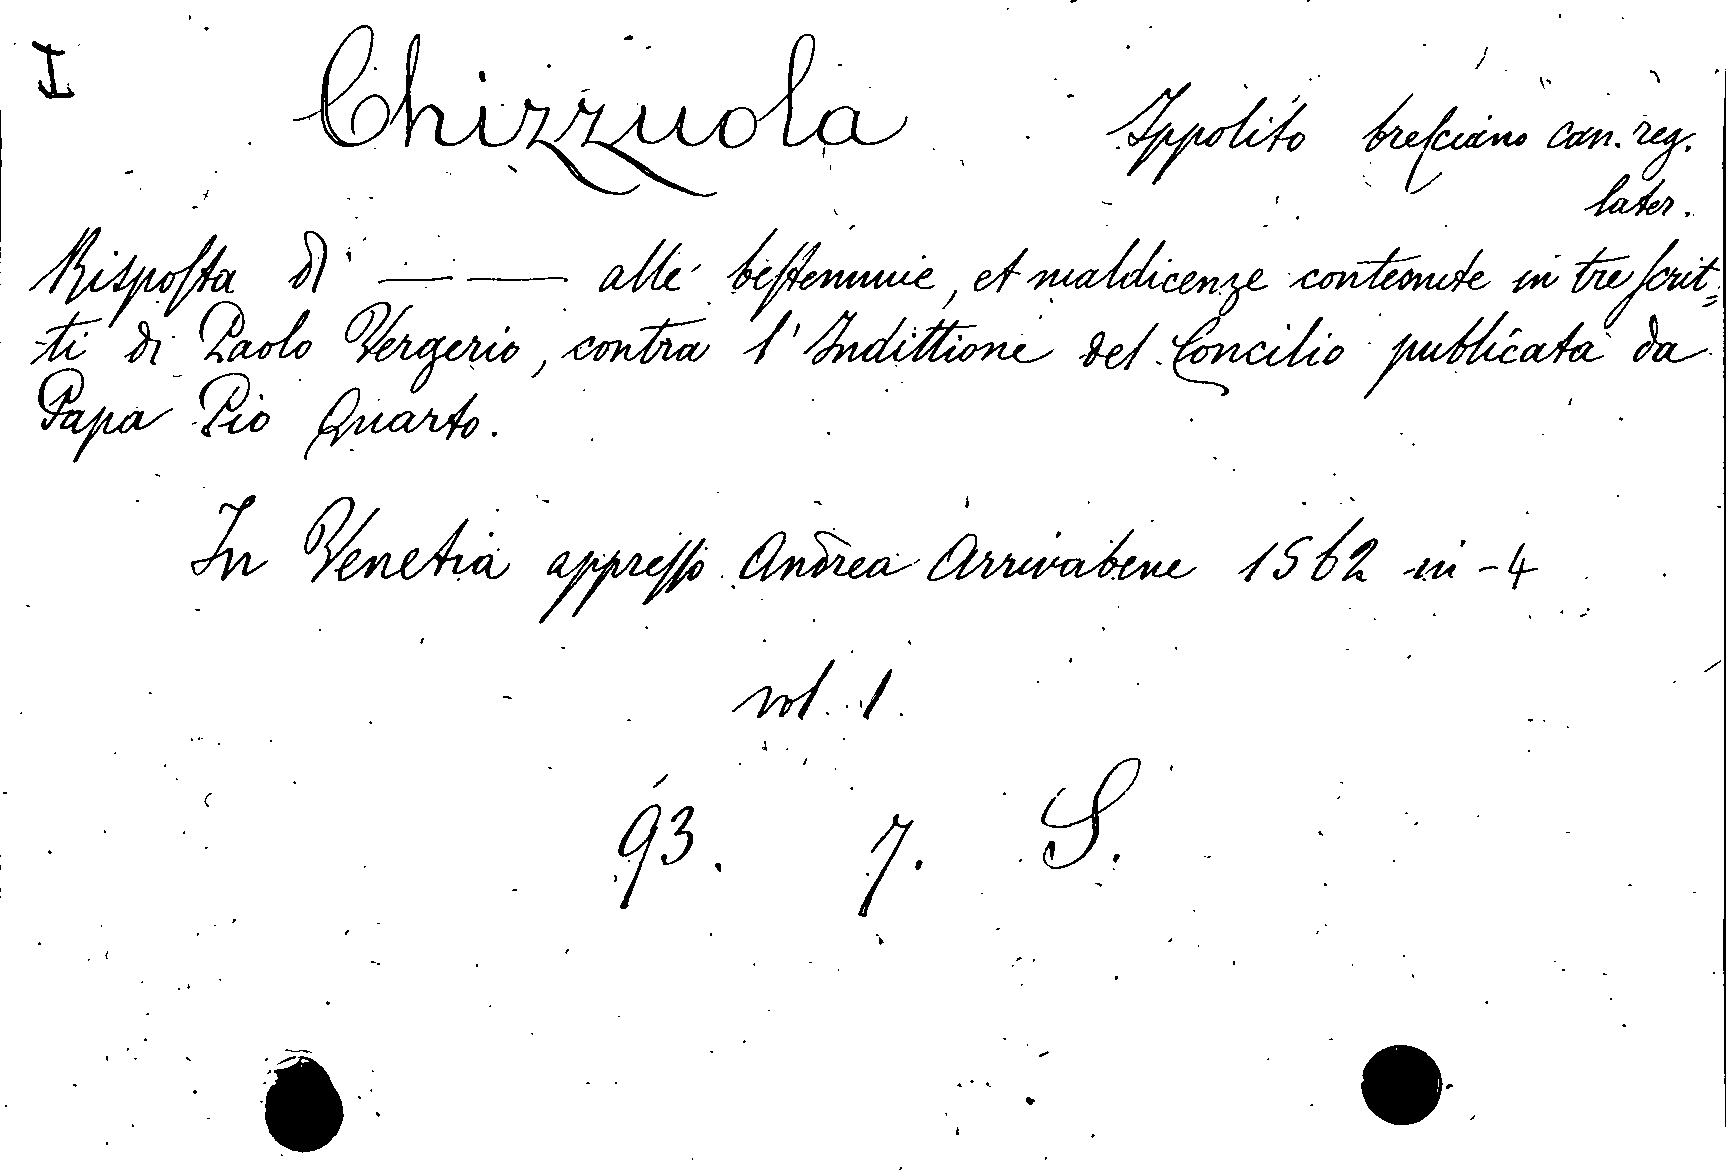 I Chizzuola Ippolito breſciano can. reg.
later.
Riſpoſta di — — alle beſtemmie, et maldicenze contenute in tre ſcrit=
ti di Paolo Vergerio, contra l'Indittione del Concilio publicata da
Papa Pio Quarto.
In Venetia appreſſo Andrea Arrivabene 1562 in-4
vol. 1.
93. 7. S.